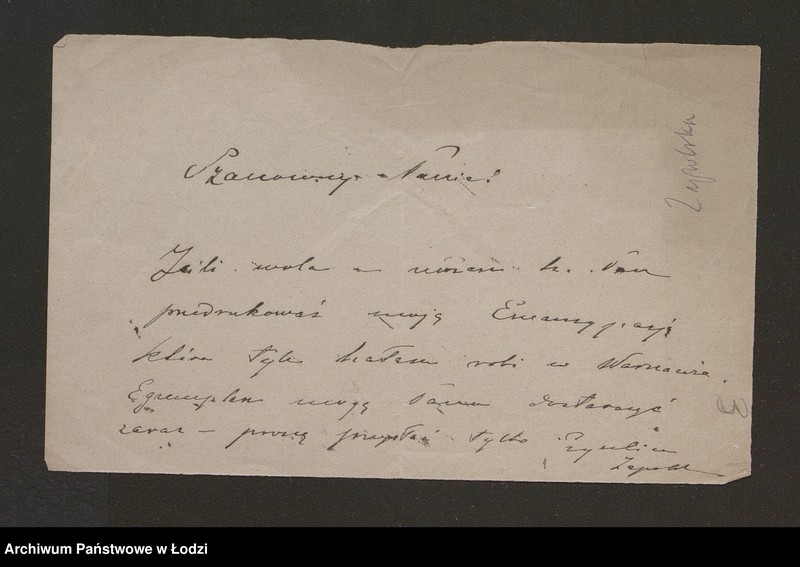 Szanowny Panie!
Zapolska
Jeśli wola a możesz Pan
przedrukować moją Emancypację
która tyle hałasu robi w Warszawie.
Egzemplarz mogę Panu dostarczyć
zaraz – proszę przysłać tylko
Zapolska
3
Archiwum Państwowe w Łodzi